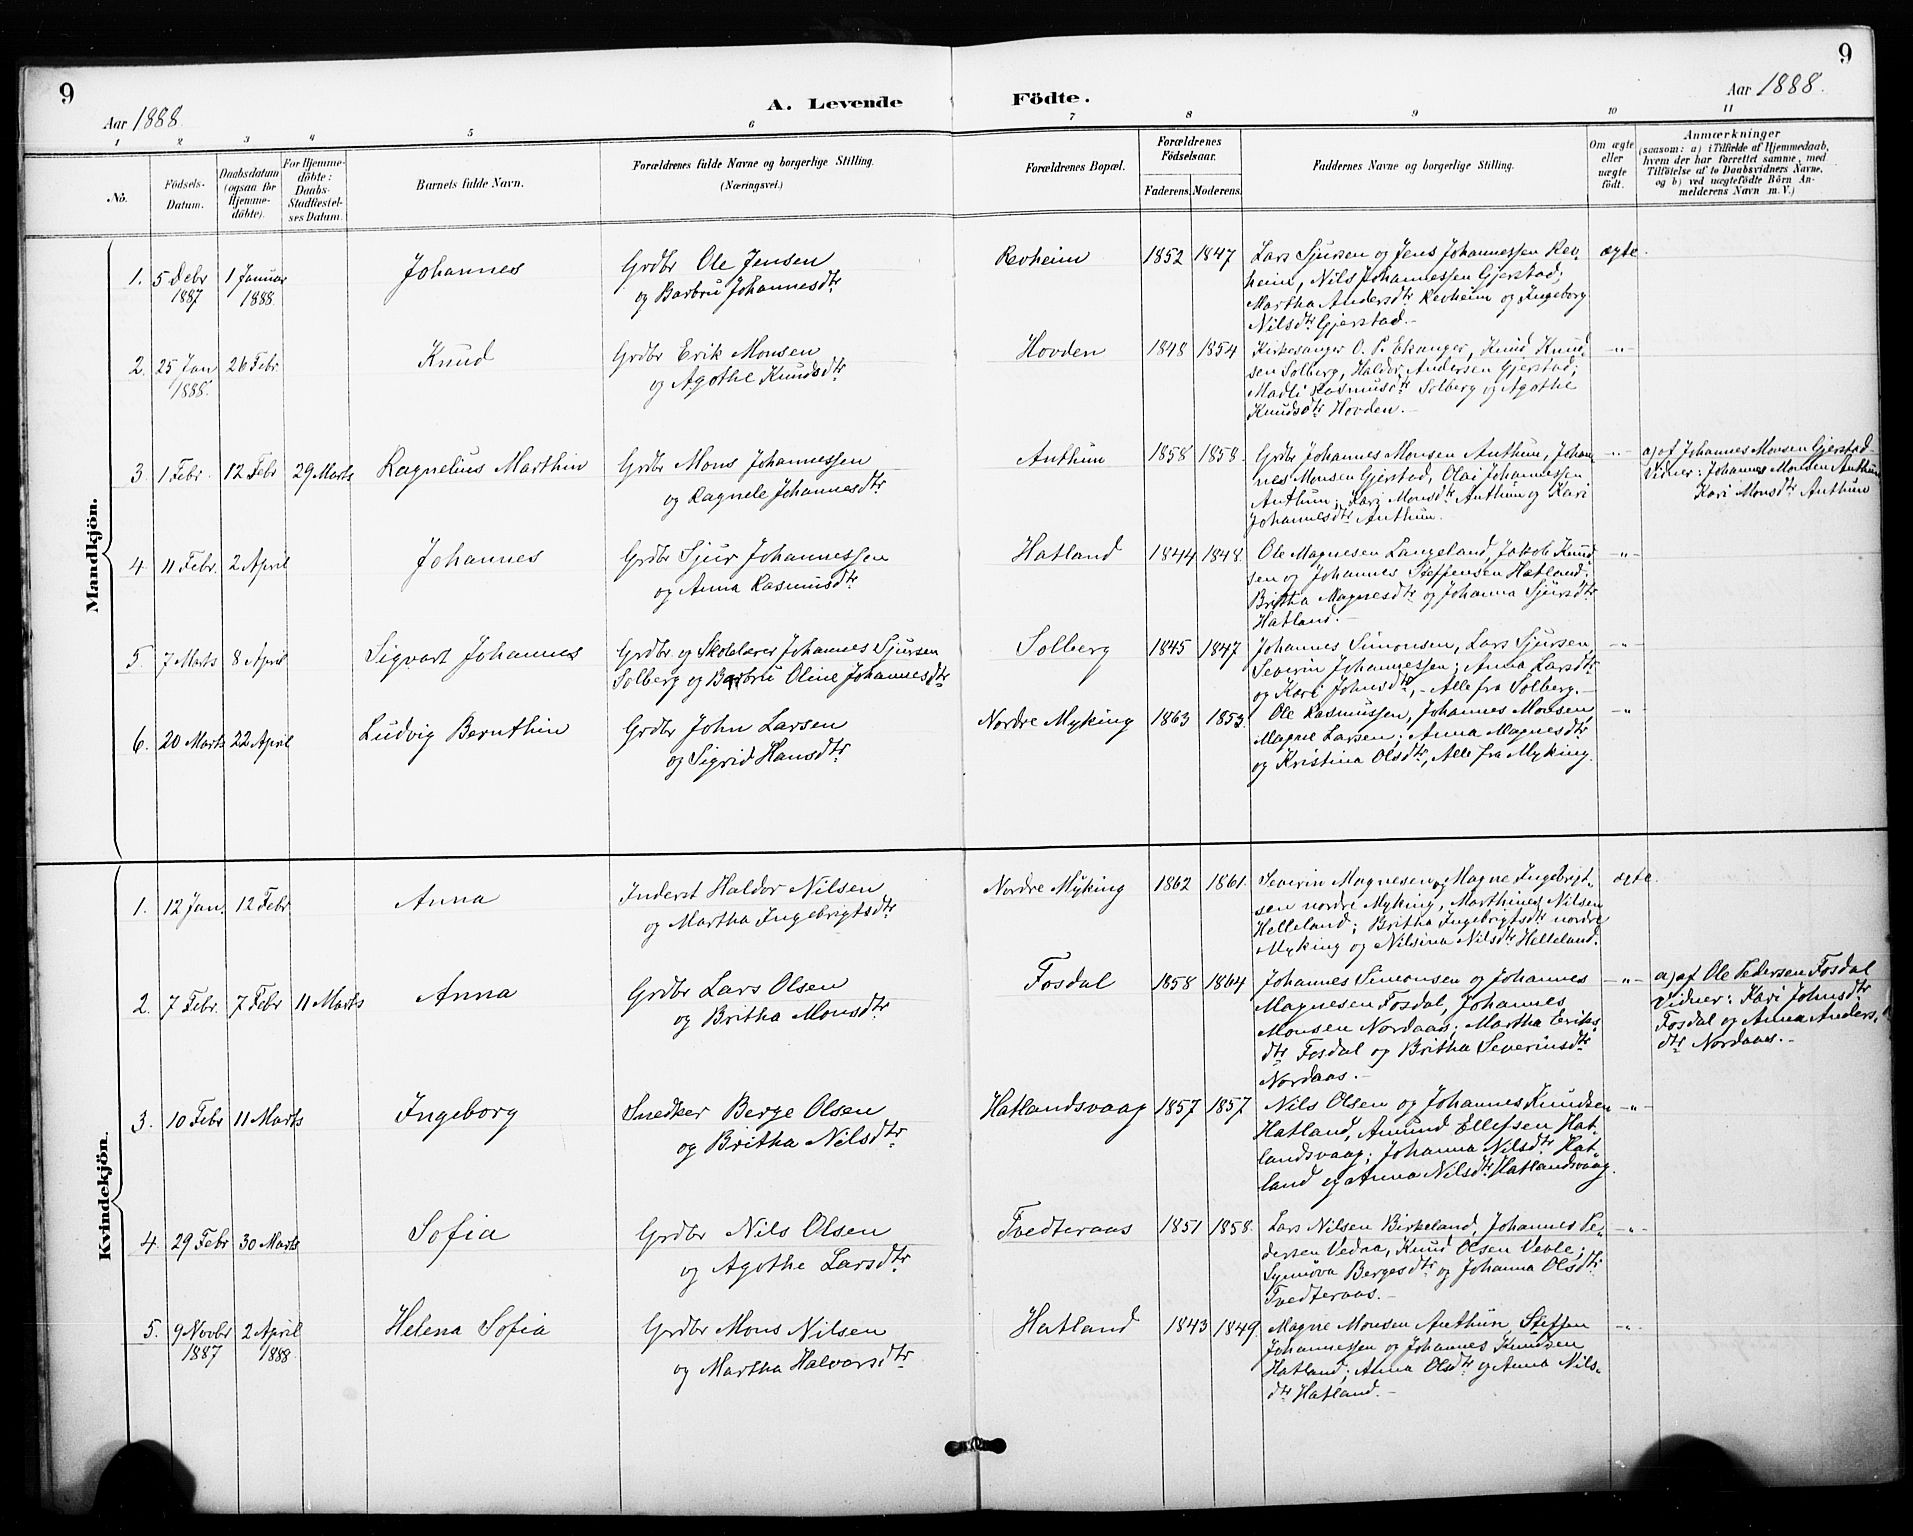 9
9
Aar 1888.
A. Levende Födte.
Aar 1888.
1 2 3 4 5 6 7 8 9 10 11
No.
Födsels-Datum.
Daabsdatum (ogsaa for Hjemmedöbte).
For Hjemmedöbte: Daabs-Stadfæstelses Datum.
Barnets fulde Navn.
Forældrenes fulde Navne og borgerlige Stilling.
(Næringsvei.)
Forældrenes Bopæl.
Forældrenes Födselsaar.
Faderens. Moderens.
Faddernes Navne og borgerlige Stilling.
Om ægte eller uægte født.
Anmærkninger
(saasom: a) i Tilfælde af Hjemmedaab,
hvem der har forrettet samme, med
Tilföielse af to Daabsvidners Navne,
og b) ved uægtefödte Börn An-
melderens Navn m. V.)
Mandkjön.
1. 5 Debr 1887 1 Januar 1888 Johannes
Grdbr Ole Jensen
og Barbru Johannesdtr
Revheim 1852 1847
Lars Sjursen og Jens Johannessen Rev-
heim, Nils Johannessen Gjerstad;
Martha Andersdtr Revheim og Ingeborg
Nilsdtr Gjerstad.-
ægte.
2. 25 Jan 1888. 26 Febr Knud
Grdbr Erik Monsen
og Agothe Knudsdtr
Hovden 1848 1854
Kirkesanger O. P. Ekanger, Knud Knud-
sen Solberg, Haldor Andersen Gjerstad;
Madli Rasmusdtr Solberg og Agathe
Knudsdtr Hovden.-
-"-
3. 1 Febr. 12 Febr 29 Marts Ragnelius Marthin
Grdbr Mons Johannessen
og Ragnele Johannesdtr
Anthun 1858 1858.
Grdbr Johannes Monsen Anthun, Johan-
nes Monsen Gjerstad, Olai Johannessen
Anthun; Kari Monsdtr Anthun og Kari
Johannesdtr Anthun.
-"-
a) af Johannes Monsen Gjerstad
Vidner: Johannes Monsen Anthun
Kari Monsdtr Anthun
4. 11 Febr. 2 April Johannes
Grdbr Sjur Johannessen
og Anna Rasmusdtr
Hatland 1844 1848.
Ole Magnesen Langeland, Jakob Knud-
sen og Johannes Steffensen Hatland;
Britha Magnesdtr og Johanna Sjursdtr
Hatland.-
-"-
5. 7 Marts 8 April Sigvart Johannes
Grdbr og Skolelærer Johannes Sjursen
Solberg og Barbru Oline Johannesdtr
Solberg 1845 1847
Johannes Simonsen, Lars Sjursen,
Severin Johannessen; Anna Larsdtr
og Kari Johnsdtr, - Alle fra Solberg.-
-"-
6. 20 Marts 22 April Ludvig Bernthin
Grdbr John Larsen
og Sigrid Hansdtr
Nordre Myking 1863 1853.
Ole Rasmussen, Johannes Monsen,
Magne Larsen; Anna Magnesdtr
og Kristina Olsdtr, Alle fra Myking.
-"-
Kvindekjön.
1. 12 Jan. 12 Febr Anna
Inderst Haldor Nilsen
og Martha Ingebrigtsdtr
Nordre Myking 1862 1861.
Severin Magnesen og Magne Ingebrigt-
sen nordre Myking, Marthines Nilsen
Helleland; Britha Ingebrigtsdtr nordre
Myking og Nilsina Nilsdtr Helleland.
ægte.
2. 7 Febr. 7 Febr 11 Marts Anna
Grdbr Lars Olsen
og Britha Monsdtr
Fosdal 1858 1864
Johannes Simonsen og Johannes
Magnesen Fosdal, Johannes
Monsen Nordaas; Martha Eriks-
dtr Fosdal og Britha Severinsdtr
Nordaas.-
-"-
a) af Ole Pedersen Fosdal
Vidner: Kari Johnsdtr
Fosdal og Anna Anders-
dtr Nordaas.-
3. 10 Febr 11 Marts Ingeborg
Snedker Berge Olsen
og Britha Nilsdtr
Hatlandsvaag 1857 1857
Nils Olsen og Johannes Knudsen
Hatland, Amund Ellefsen Hat-
landsvaag; Johanna Nilsdtr Hat-
land og Anna Nilsdtr Hatlandsvaag.
-"-
4. 29 Febr 30 Marts Sofia
Grdbr Nils Olsen
og Agothe Larsdtr
Tvedteraas 1851 1858.
Lars Nilsen Birkeland, Johannes Pe-
dersen Vedaa, Knud Olsen Vevle;
Synnöva Bergesdtr og Johanna Olsdtr
Tvedteraas.-
-"-
5. 9 Novbr 1887 2 April 1888. Helena Sofia
Grdbr Mons Nilsen
og Martha Halvorsdtr
Hatland 1843 1849
Magne Monsen Anthun, Steffen
Johannessen og Johannes Knudsen
Hatland; Anna Olsdtr og Anna Nils-
dtr Hatland.-
-"-